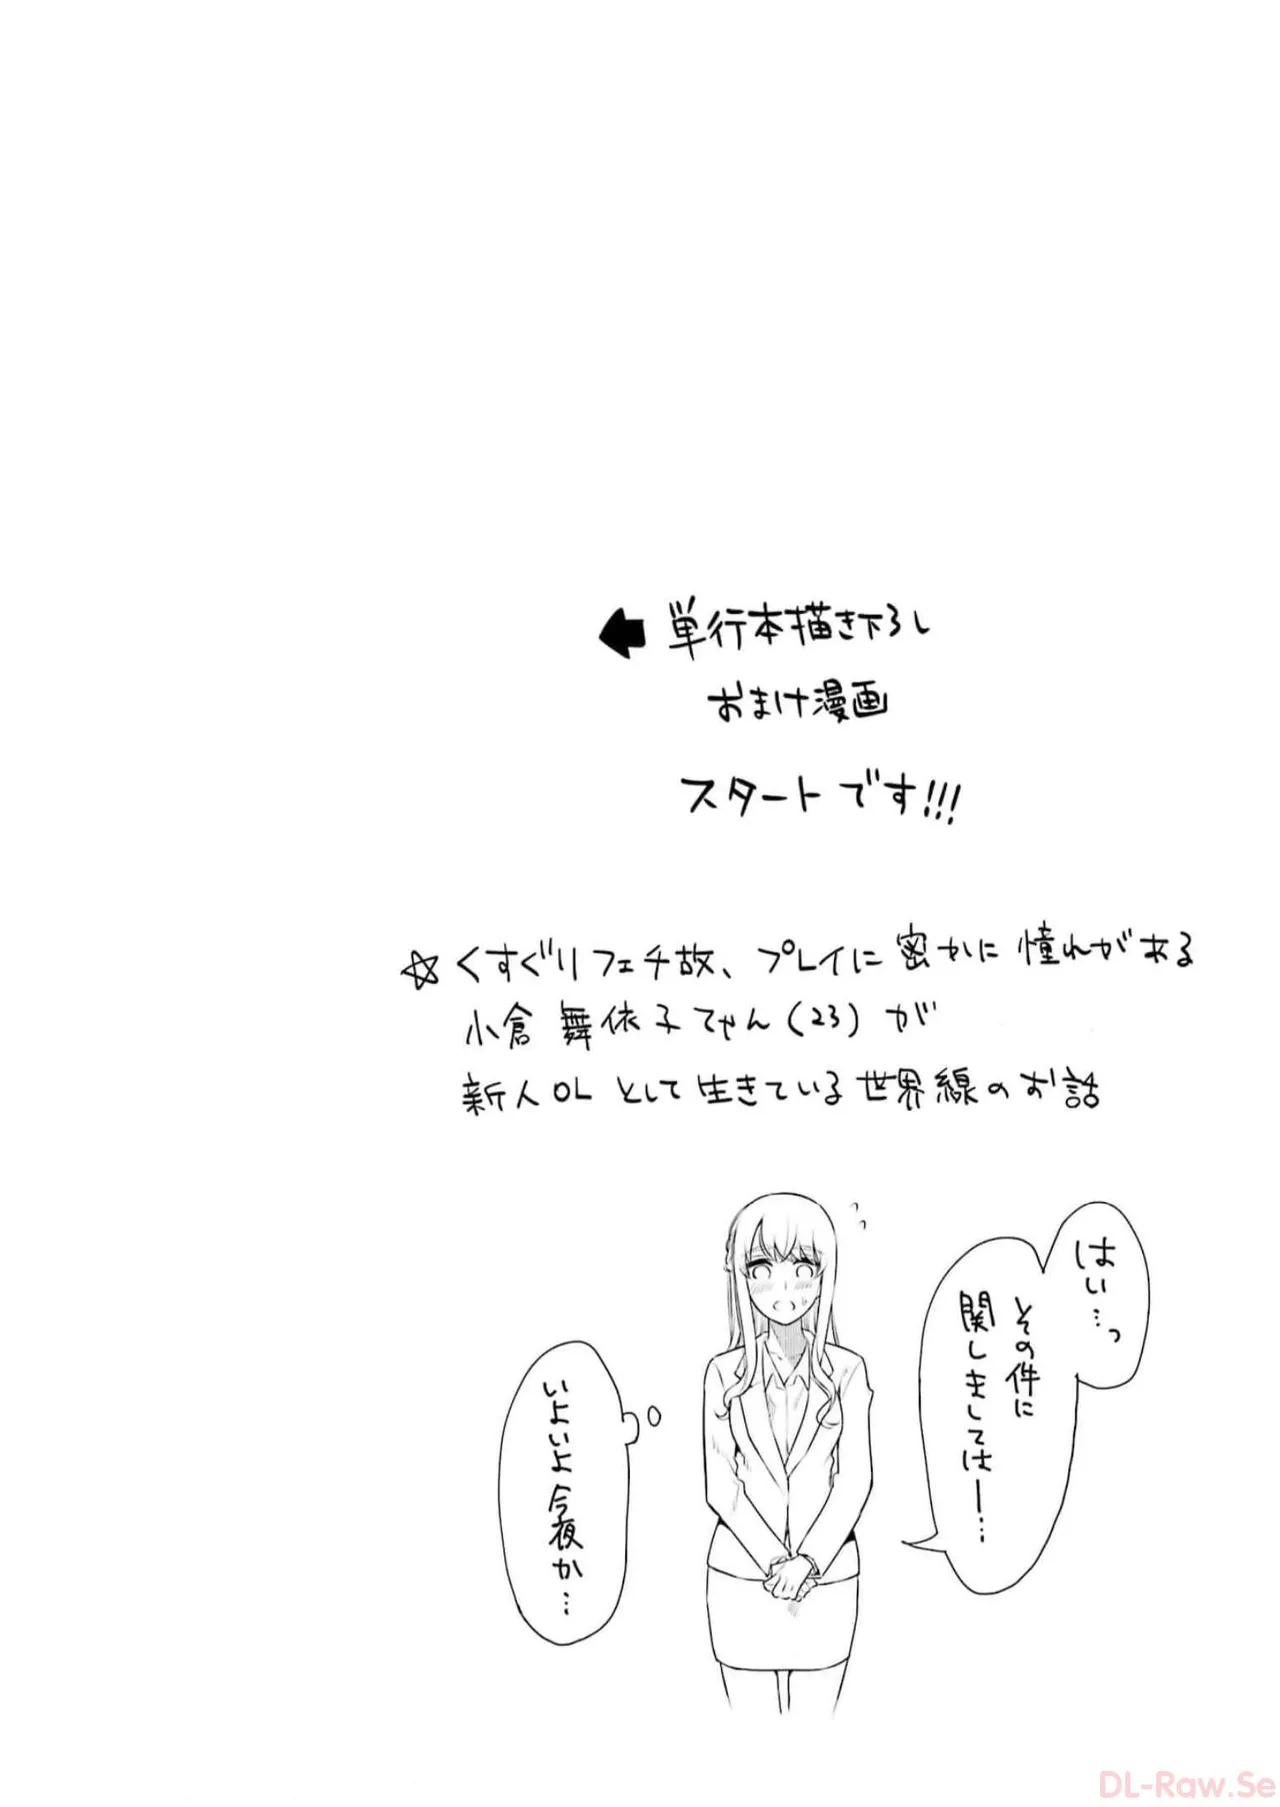 単行本描き下ろし
おまけ漫画
スタートです!!!
☆くすぐりフェチ故、プレイに密かに憧れがある
小倉舞依子ちゃん(23)が
新人OLとして生きている世界線のお話
はい…っ
その件に
関しましてはー…
いよいよ今夜か…
DL-Raw.Se